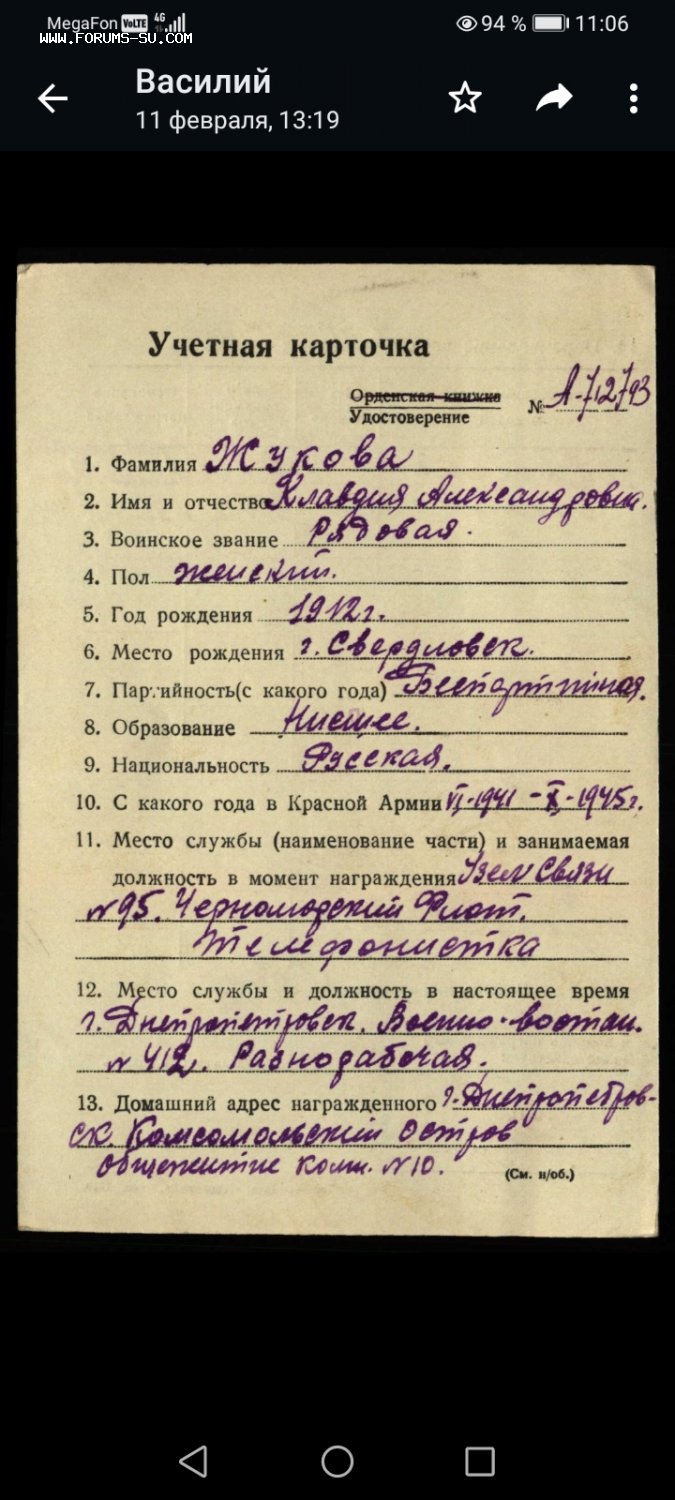 MegaFon VoLTE 4G 94 % 11:06
www.FORUMS-SU.COM
Василий
11 февраля, 13:19
Учетная карточка
Орденская книжка
Удостоверение № А-712793
1. Фамилия Жукова
2. Имя и отчество Клавдия Александровна.
3. Воинское звание Рядовая.
4. Пол женский.
5. Год рождения 1912 г.
6. Место рождения г. Свердловск.
7. Партийность(с какого года) Беспартийная.
8. Образование Низшее.
9. Национальность Русская.
10. С какого года в Красной Армии VI-1941 - X-1945 г.
11. Место службы (наименование части) и занимаемая
должность в момент награждения Узел Связи
№95. Черноморский Флот.
Телефонистка
12. Место службы и должность в настоящее время
г. Днепропетровск. Военно-востан.
№ 412. Разнорабочая.
13. Домашний адрес награжденного г. Днепропетров-
ск Комсомольский остров
общежитие комн. №10.
(См. н/об.)